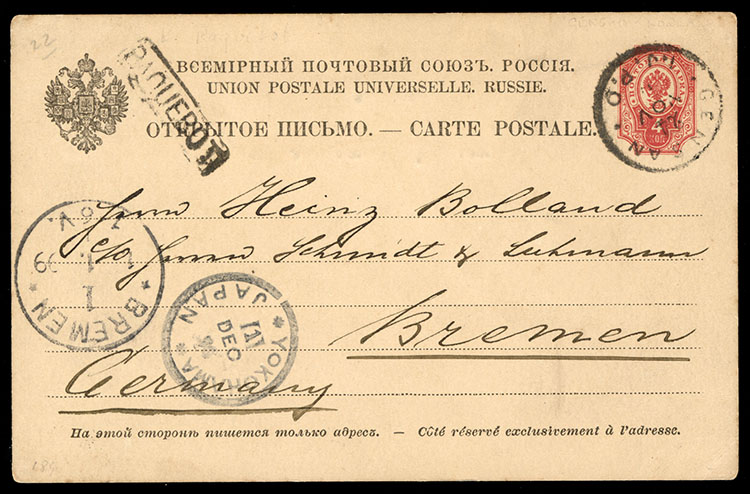 22
PAQUEBOT
ВСЕМІРНЫЙ ПОЧТОВЫЙ СОЮЗЪ. РОССІЯ.
UNION POSTALE UNIVERSELLE. RUSSIE.
ОТКРЫТОЕ ПИСЬМО. — CARTE POSTALE.
ПОЧТОВАЯ МАРКА
4
КОП
GENSAN
Herrn Heinz Bolland
c/o Herren Schmidt & Luhmann
Bremen
Germany
BREMEN
1
1.
99
V.
YOKOHAMA
JAPAN
DEC
На этой сторонѣ пишется только адресъ. — Côté réservé exclusivement à l'adresse.